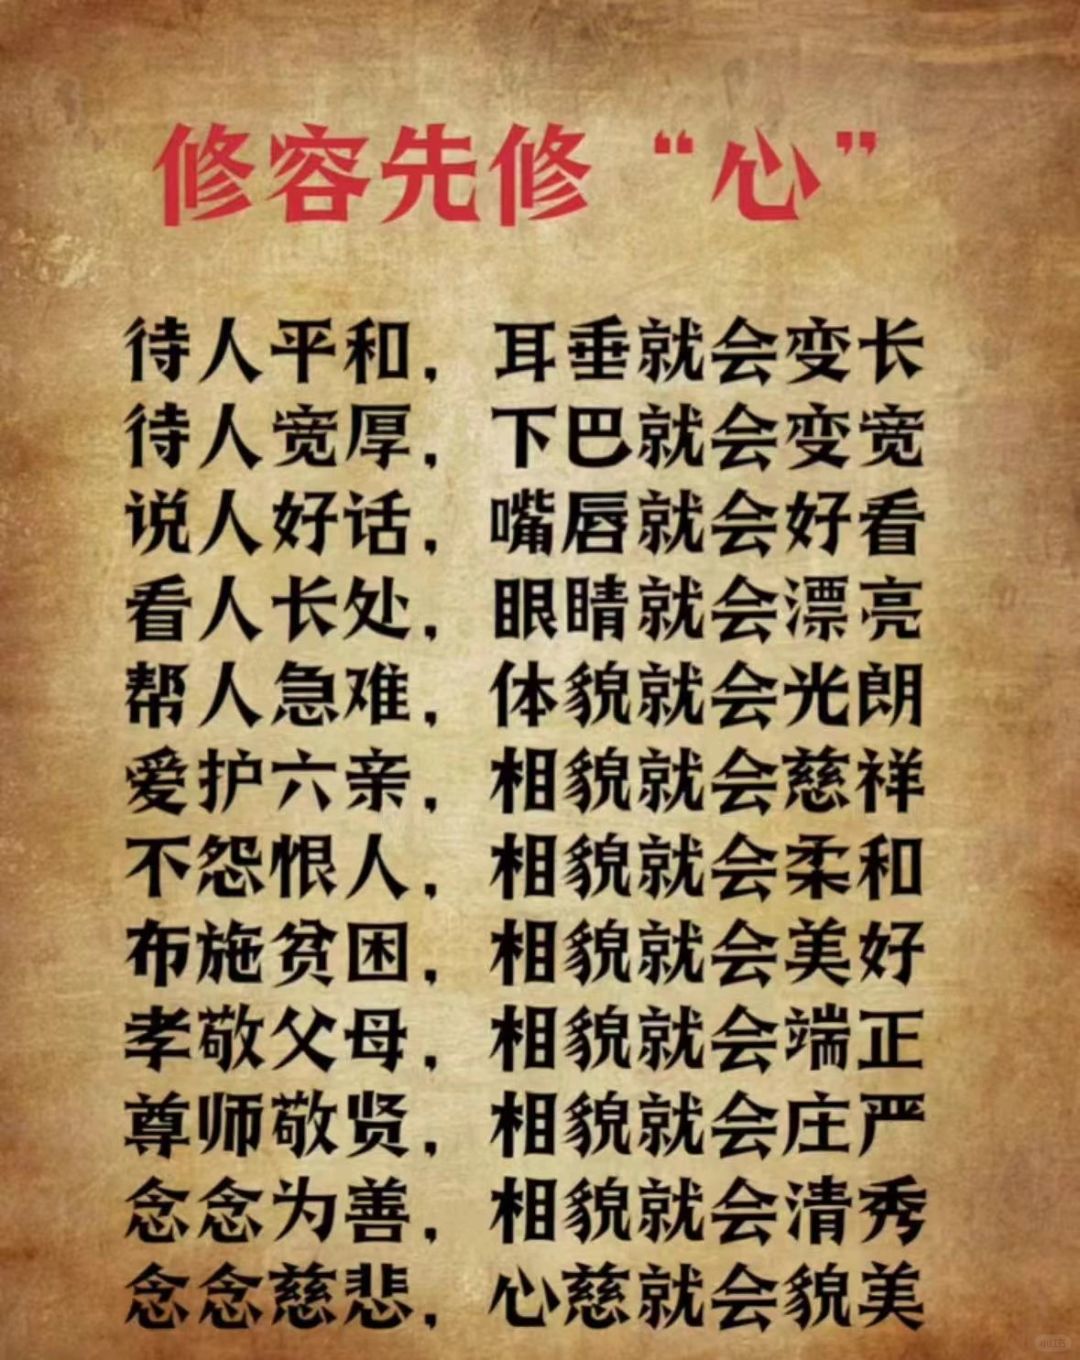 修容先修“心”
待人平和，耳垂就会变长
待人宽厚，下巴就会变宽
说人好话，嘴唇就会好看
看人长处，眼睛就会漂亮
帮人急难，体貌就会光朗
爱护六亲，相貌就会慈祥
不怨恨人，相貌就会柔和
布施贫困，相貌就会美好
孝敬父母，相貌就会端正
尊师敬贤，相貌就会庄严
念念为善，相貌就会清秀
念念慈悲，心慈就会貌美